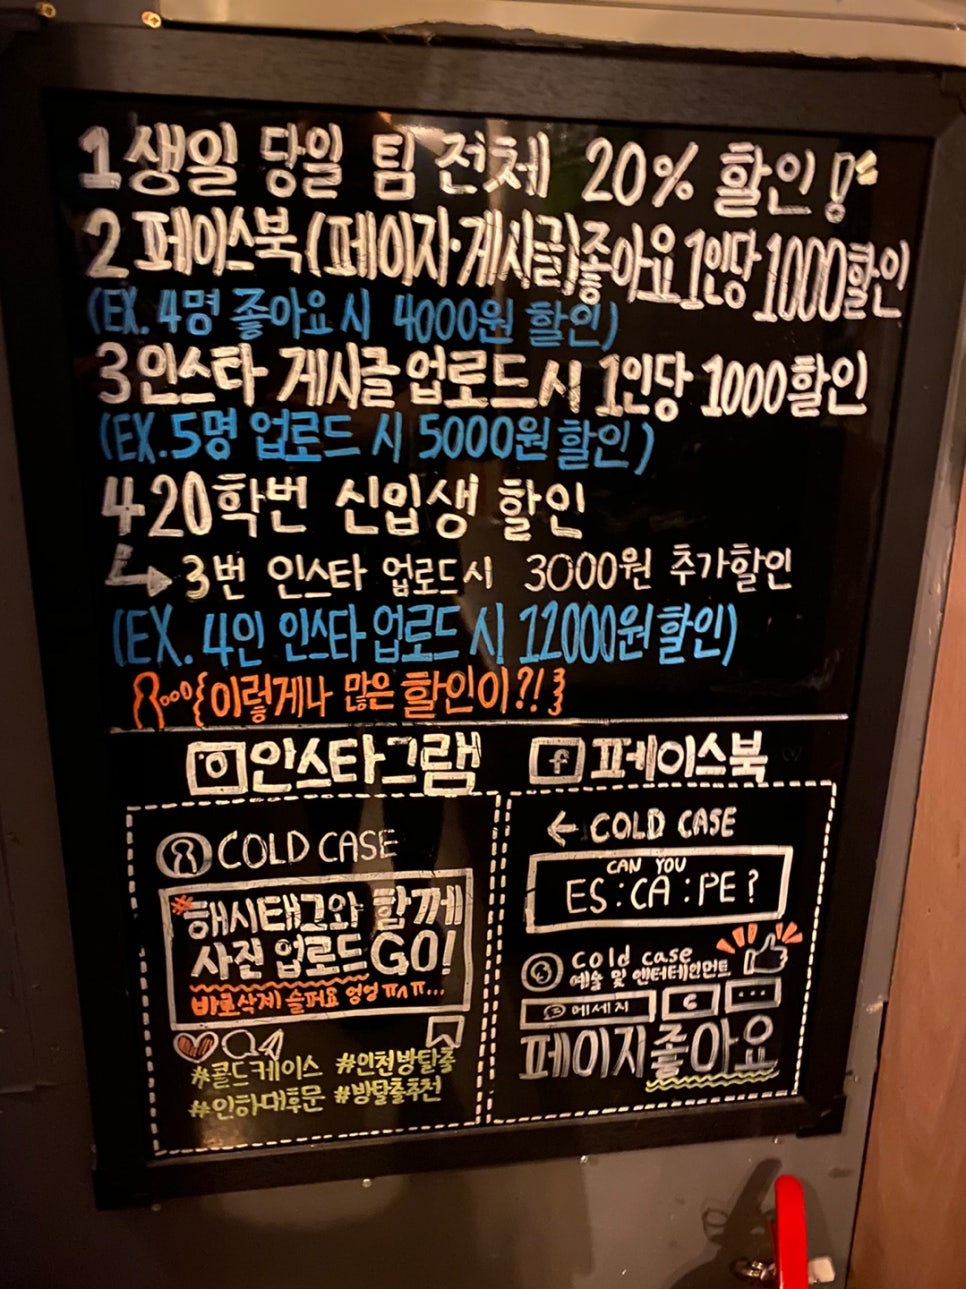 1 생일 당일 팀 전체 20% 할인!
2 페이스북(페이지·게시글)좋아요 1인당 1000할인
(EX. 4명 좋아요 시 4000원 할인)
3 인스타 게시글 업로드 시 1인당 1000할인
(EX. 5명 업로드 시 5000원 할인)
4 20학번 신입생 할인
↳ 3번 인스타 업로드시 3000원 추가할인
(EX. 4인 인스타 업로드 시 12000원 할인)
{이렇게나 많은 할인이?!}
인스타그램
COLD CASE
*해시태그와 함께
사진 업로드 GO!
바로삭제 슬퍼요 엉엉 ㅠㅅㅠ...
#콜드케이스 #인천방탈출
#인하대후문 #방탈출추천
f 페이스북
← COLD CASE
CAN YOU
ES:CA:PE?
cold case
예술 및 엔터테인먼트
메세지 ...
페이지좋아요